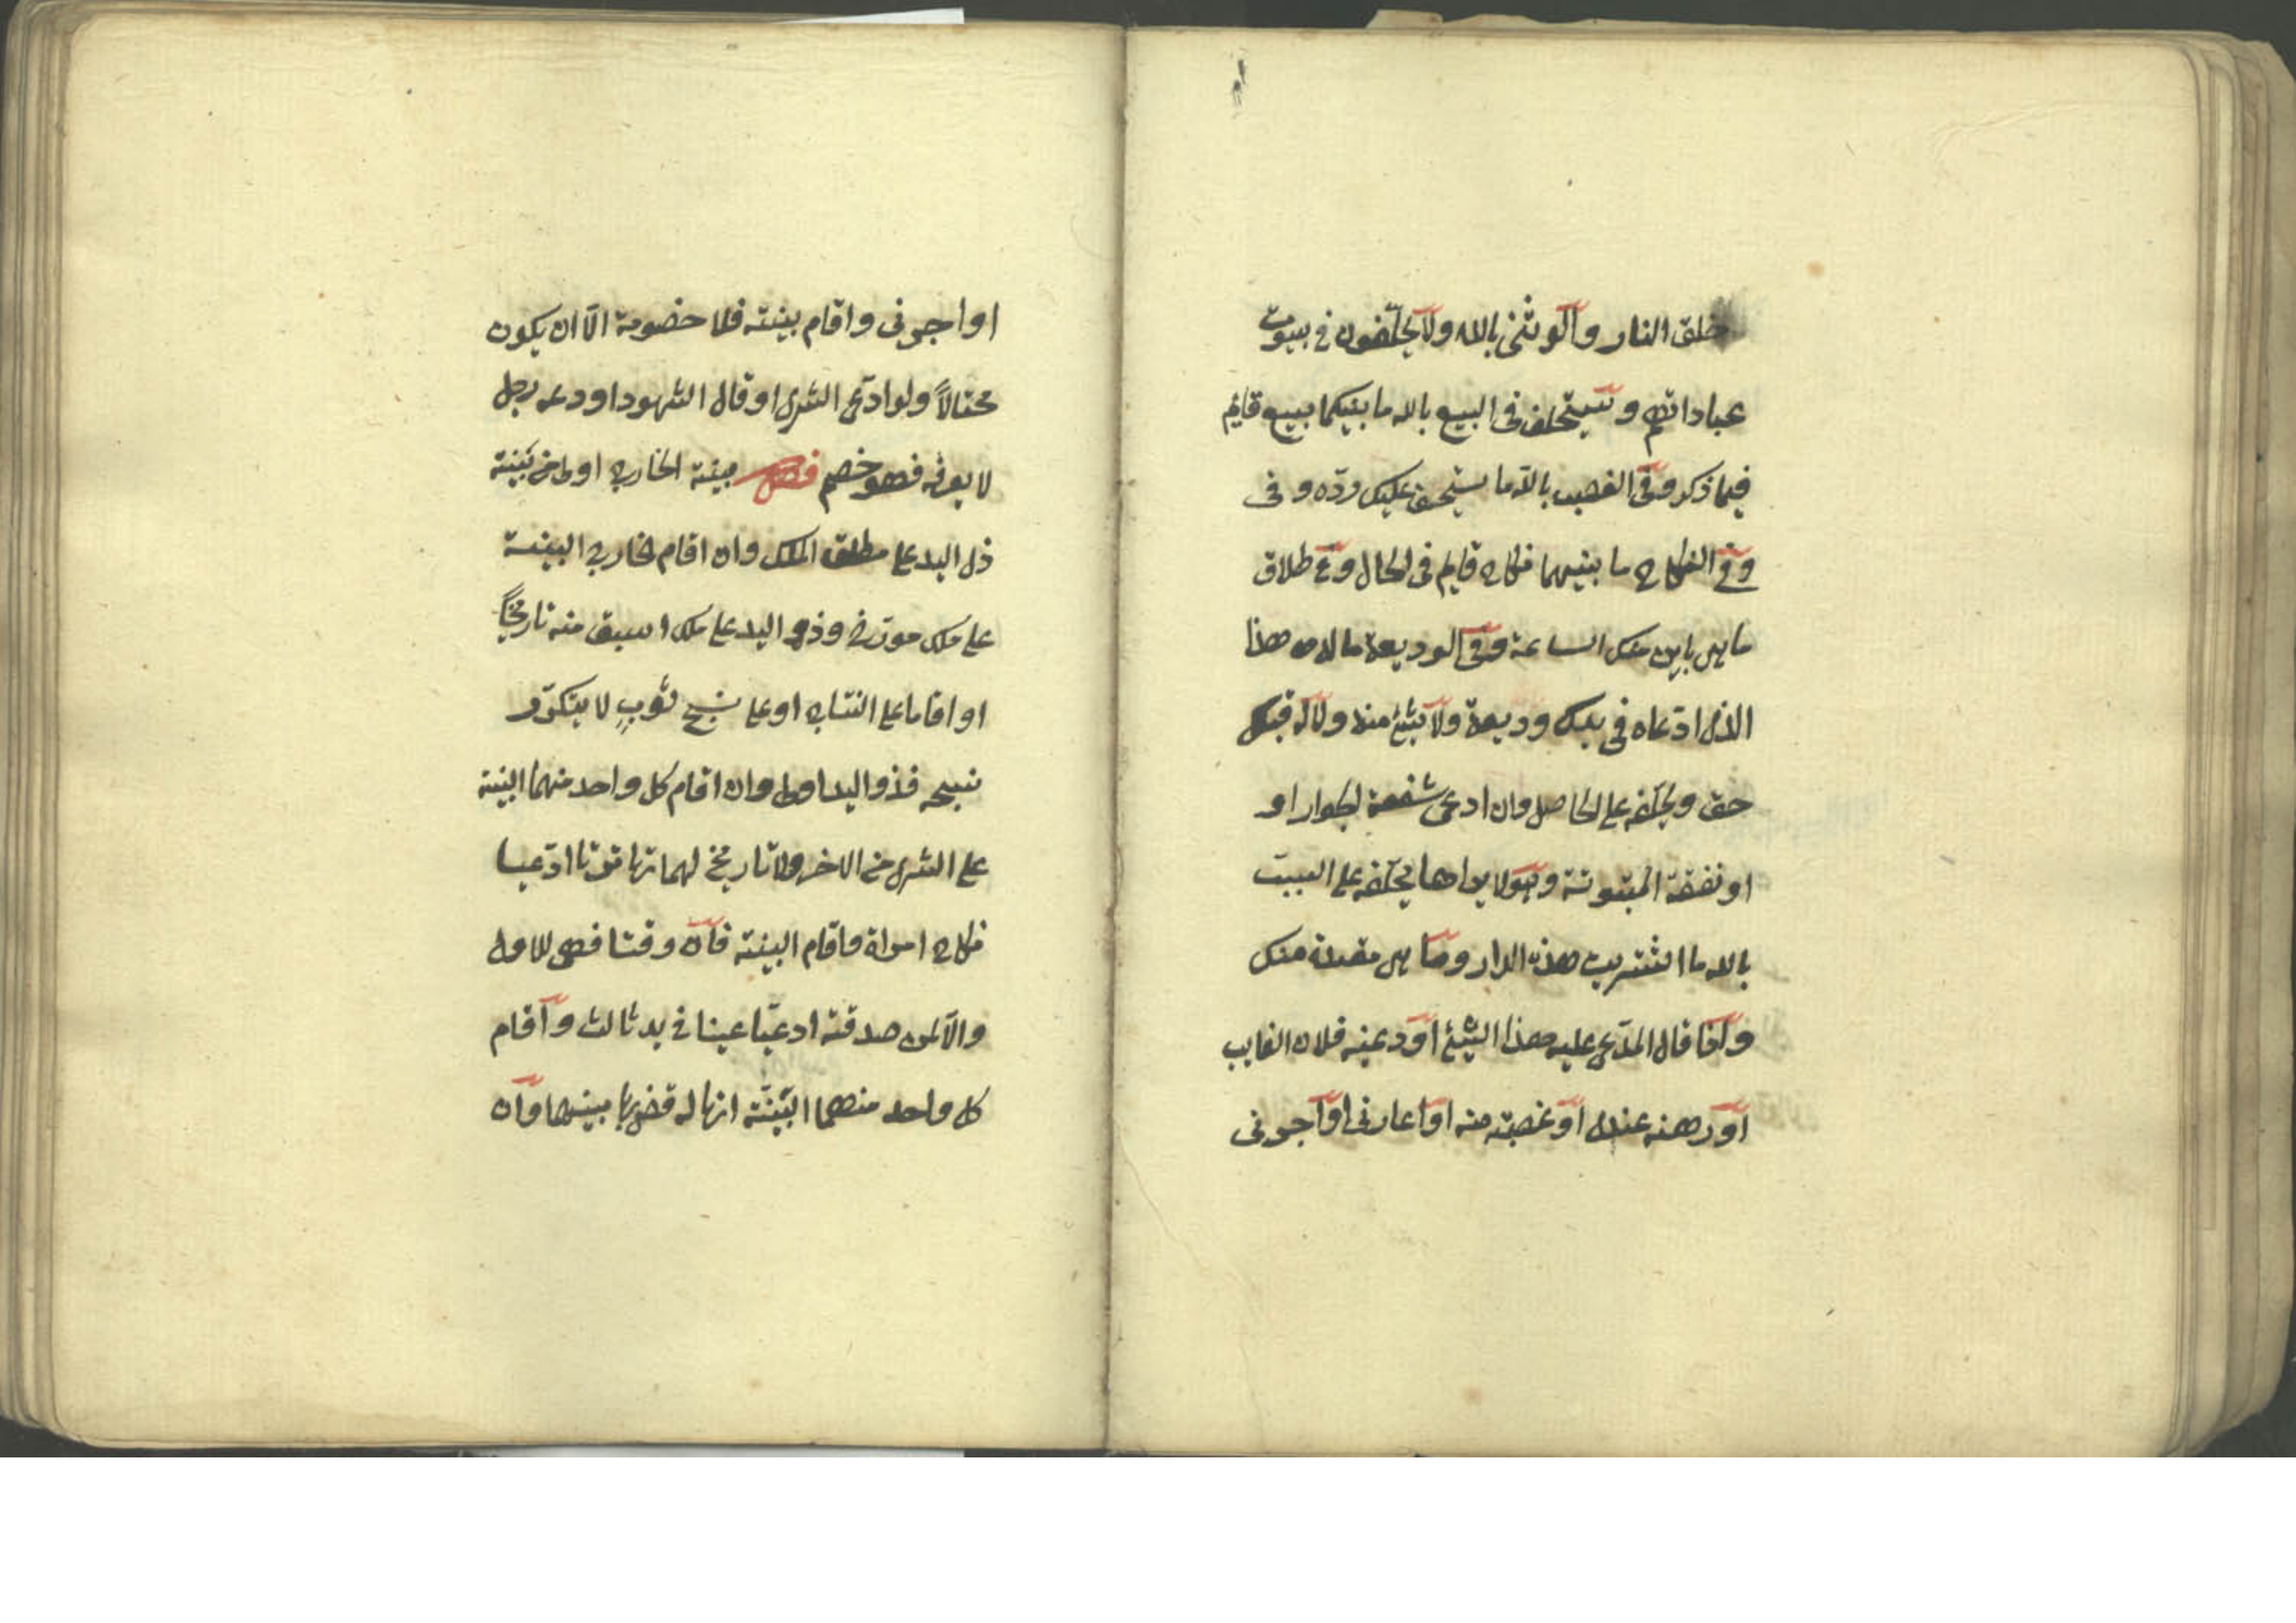 خلق النار والوثني بالله ولا يحلفون في بيوت
عباداتهم ويستحلف في البيع بالله ما بينكما بيع قايم
فيما ذكر وفي الغصب بالله ما يستحق عليك ردّه وفي
وفي النكاح ما بينهما نكاح قايم في الحال وفي طلاق
ما هي باين منك الساعة وفي الوديعة ما له هذا
الذي ادّعاه في يدك وديعة ولا شئ منه ولا له قبلك
حق ويحلفه على الحاصل وان ادعى شفعة الجوار او
او نفقة المبتوتة وهو لا يراها يحلّفه على السبب
بالله ما اشتريت هذه الدار وما هي معتدة منك
واذا قال المدّعى عليه هذا الشئ اودعنيه فلان الغايب
او رهنه عندي او غصبته منه او اعارني او اجرني
او اجرني واقام بينته فلا خصومة الّا ان يكون
محتالاً ولو ادّعى الشرى او قال الشهود اودعه رجل
لا نعرفه فهو خصم فصل بينة الخارج اولى من بيّنة
ذي اليد على مطلق الملك وان اقام الخارج البينة
على ملك مورّخ وذو اليد على ملك اسبق منه تاريخاً
او اقاما على النتاج او على نسج ثوبٍ لا يتكرّر
نسجه فذو اليد اولى وان اقام كل واحد منهما البينة
على الشرى من الاخر ولا تاريخ لهما تهاترتا ادّعيا
نكاح امراة واقام البينة فان وقتا فهي للاول
والّا لمن صدقته ادعيّا عينا في يد ثالث واقام
كل واحد منهما البيّنة انها له قضى بها بينهما وان